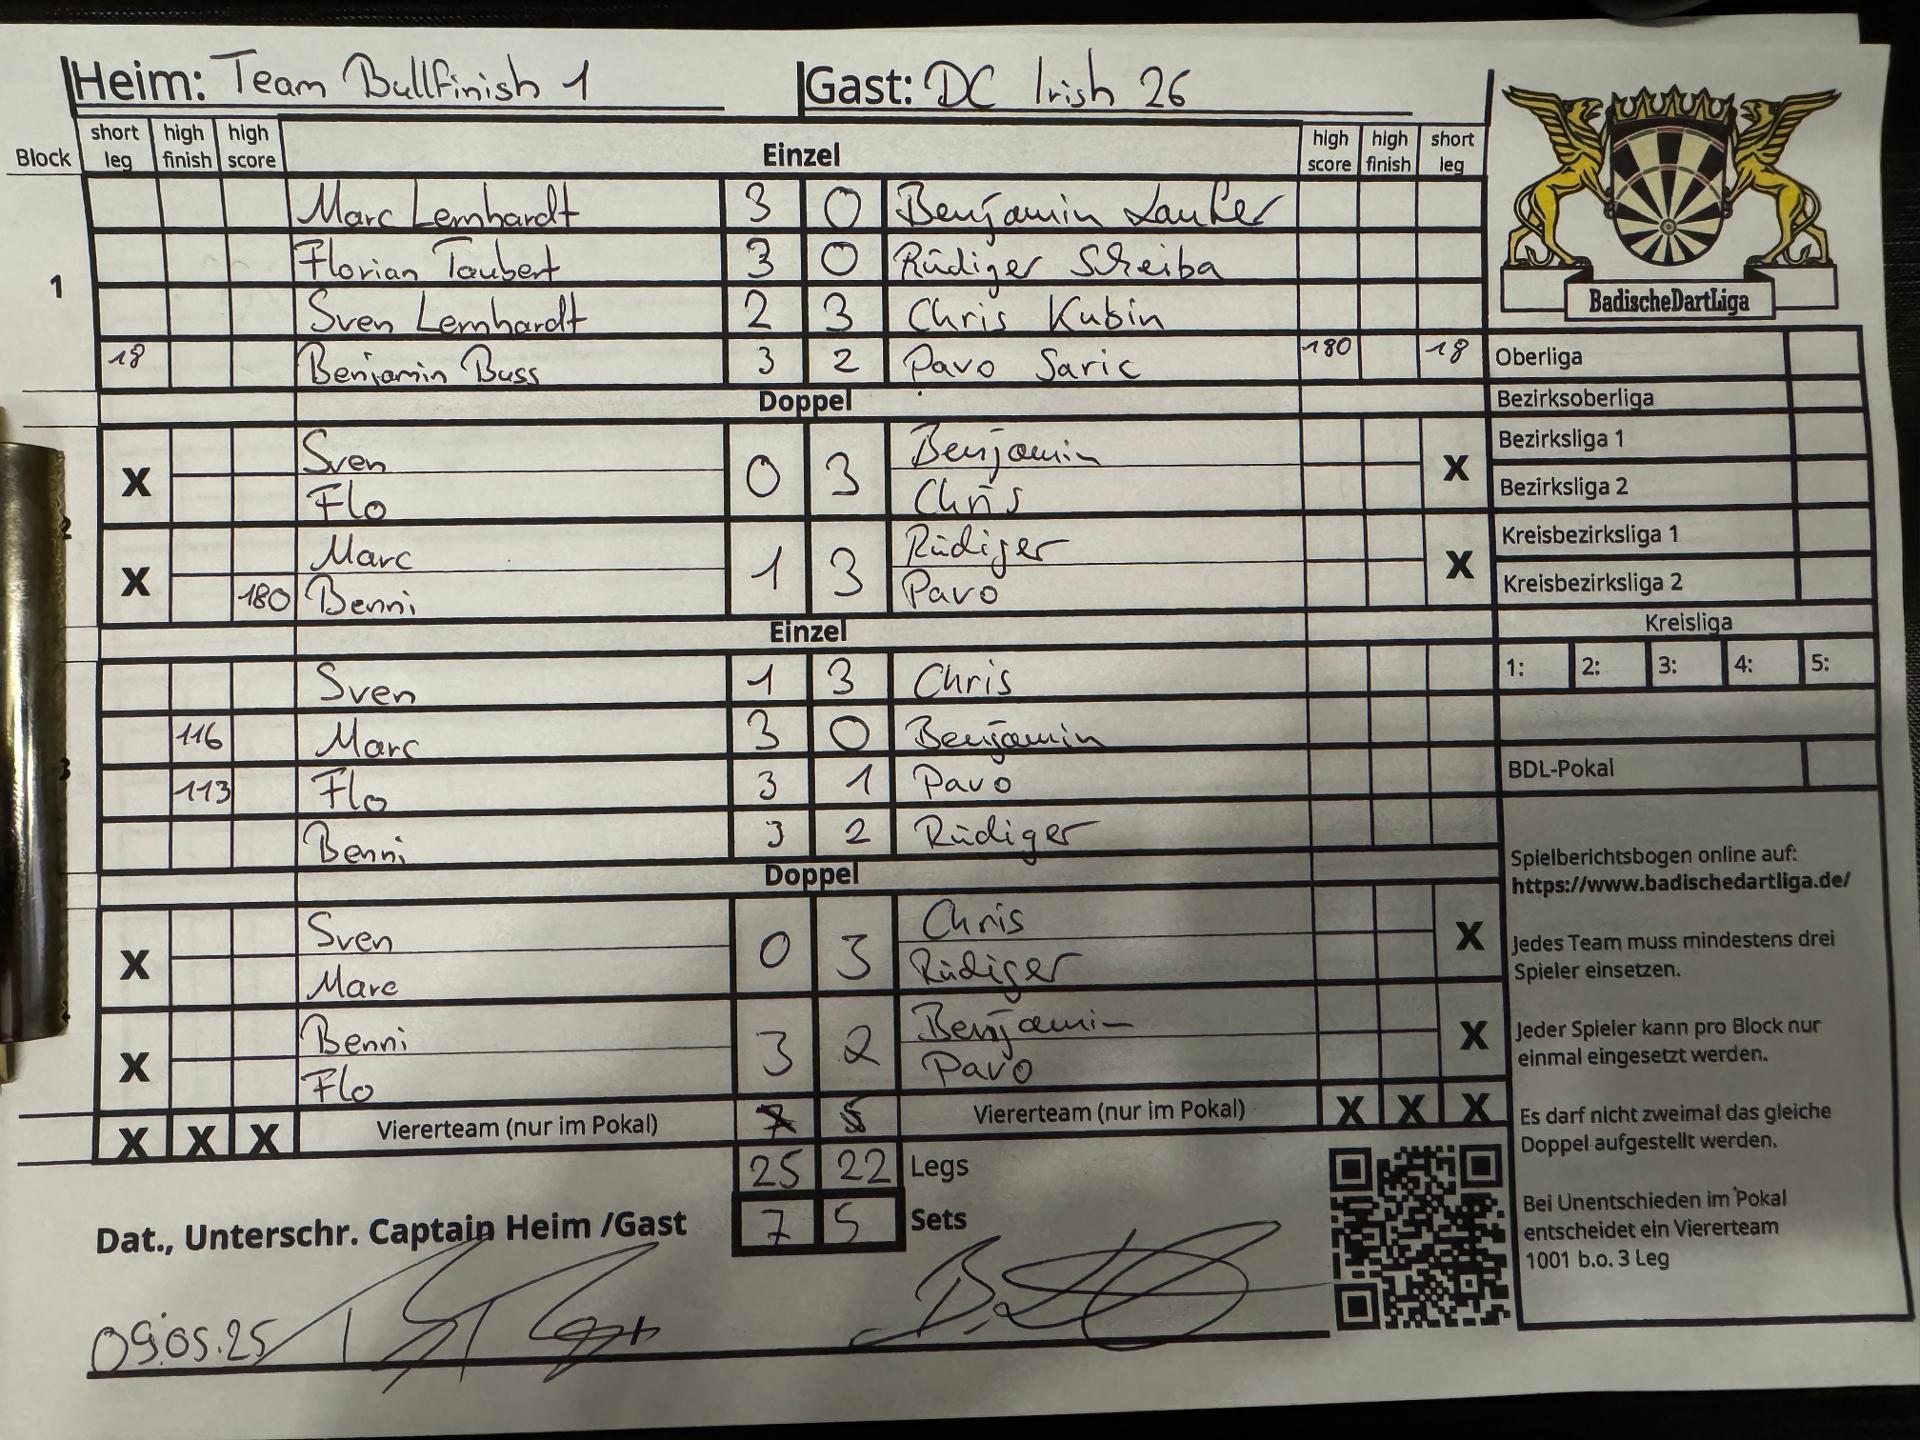 Heim: Team Bullfinish 1 Gast: DC Irish 26
Block short leg high finish high score Einzel high score high finish short leg
Marc Lernhardt 3 0 Benjamin
1 Florian Taubert 3 0 Rüdiger Scheiba
Sven Lernhardt 2 3 Chris Kubin
18 Benjamin Buss 3 2 Pavo Saric 180 18
Doppel
X Sven 0 3 Benjamin X
Flo Chris
X Marc 1 3 Rüdiger X
180 Benni Pavo
Einzel
Sven 1 3 Chris
116 Marc 3 0 Benjamin
113 Flo 3 1 Pavo
Benni 3 2 Rüdiger
Doppel
X Sven 0 3 Chris X
Marc Rüdiger
X Benni 3 2 Benjamin X
Flo Pavo
X X X Viererteam (nur im Pokal) Viererteam (nur im Pokal) X X X
25 22 Legs
Dat., Unterschr. Captain Heim /Gast 7 5 Sets
09.05.25
BadischeDartLiga
Oberliga
Bezirksoberliga
Bezirksliga 1
Bezirksliga 2
Kreisbezirksliga 1
Kreisbezirksliga 2
Kreisliga
1: 2: 3: 4: 5:
BDL-Pokal
Spielberichtsbogen online auf:
https://www.badischedartliga.de/
Jedes Team muss mindestens drei
Spieler einsetzen.
Jeder Spieler kann pro Block nur
einmal eingesetzt werden.
Es darf nicht zweimal das gleiche
Doppel aufgestellt werden.
Bei Unentschieden im Pokal
entscheidet ein Viererteam
1001 b.o. 3 Leg